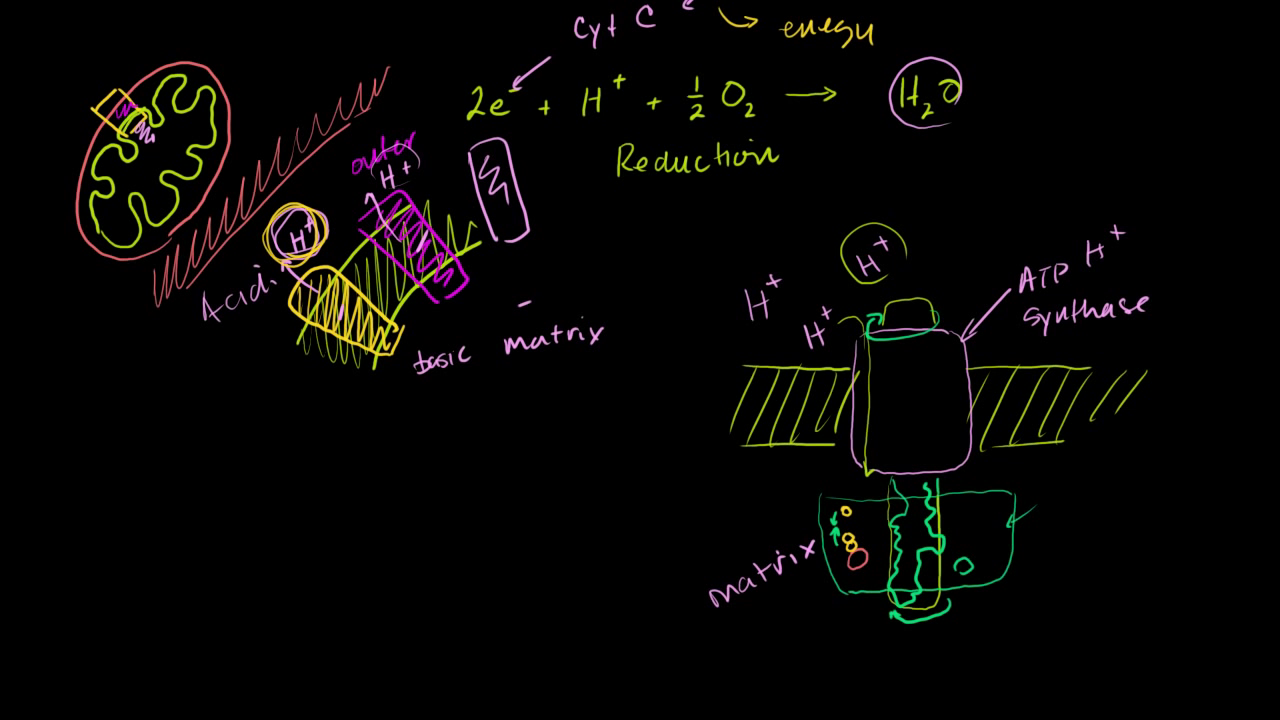 Cyt C
energy
2e⁻ + H⁺ + ½ O₂ → H₂O
Reduction
outer
H⁺
H⁺
Acid.
basic matrix
-
H⁺
H⁺
H⁺
ATP H⁺
synthase
matrix